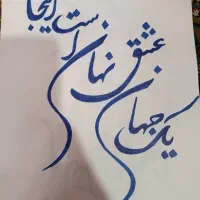 یک جهان عشق نهان است اینجا